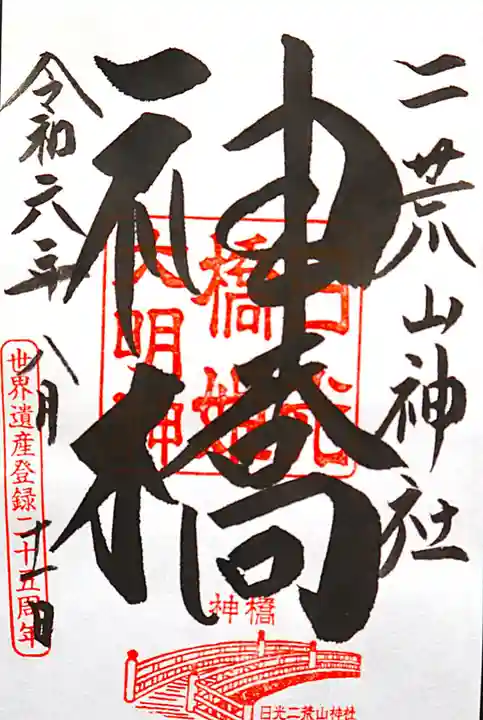 二荒山神社
神橋
日光
橋姫
大明神
令和六年八月十一日
世界遺産登録二十五周年
神橋
日光二荒山神社